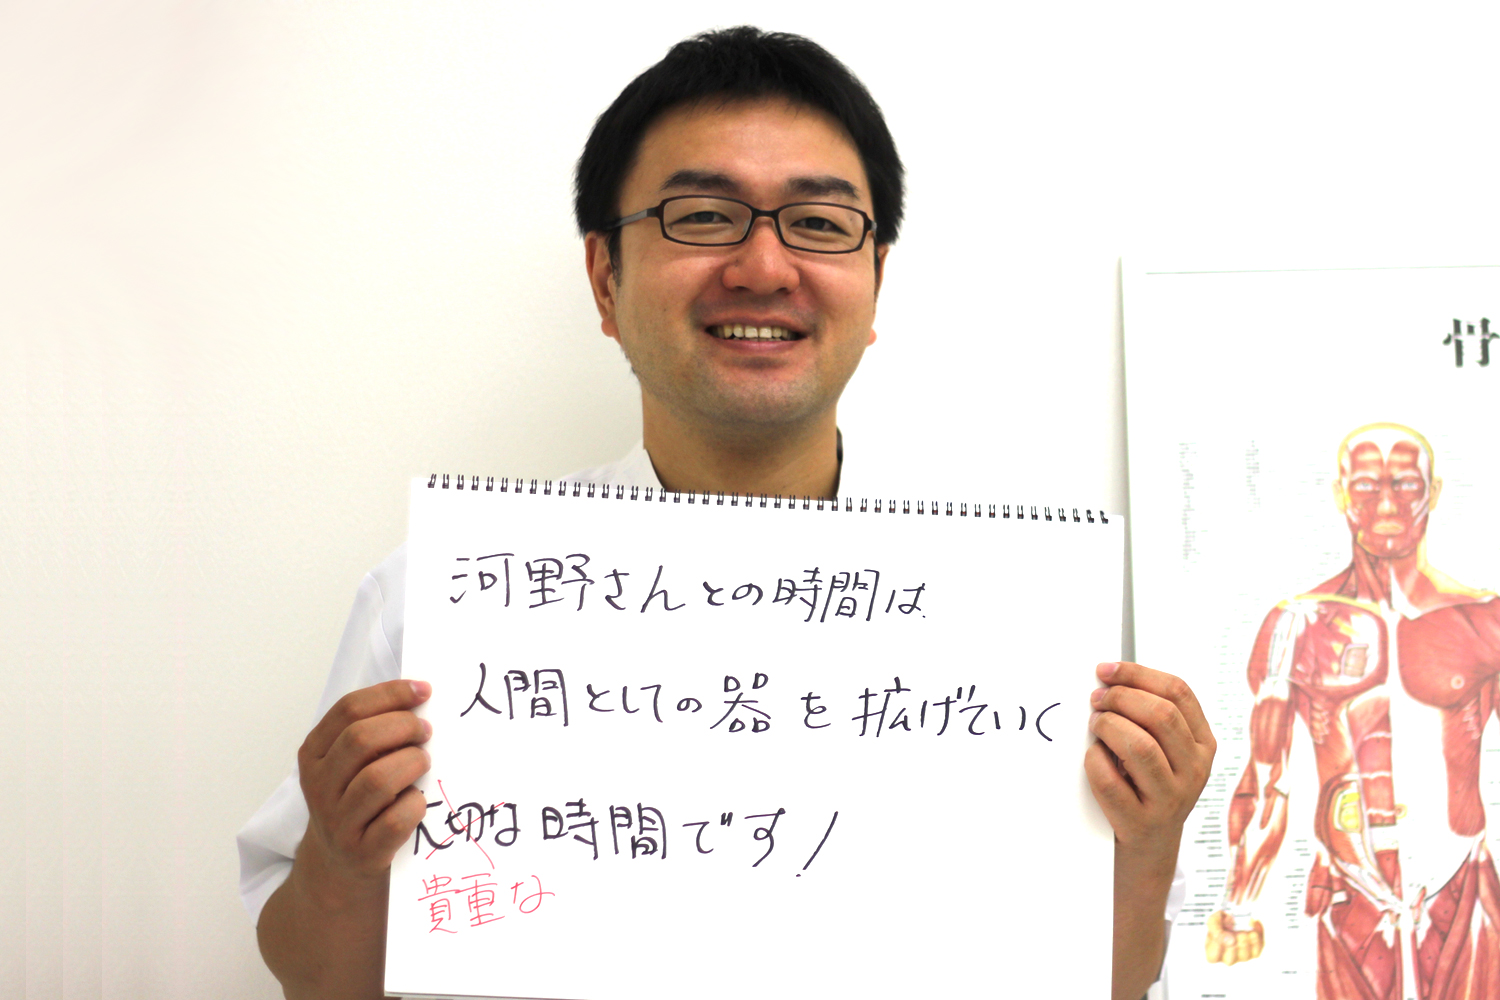 河野さんとの時間は
人間としての器を拡げていく
大切な時間です!
貴重な
竹